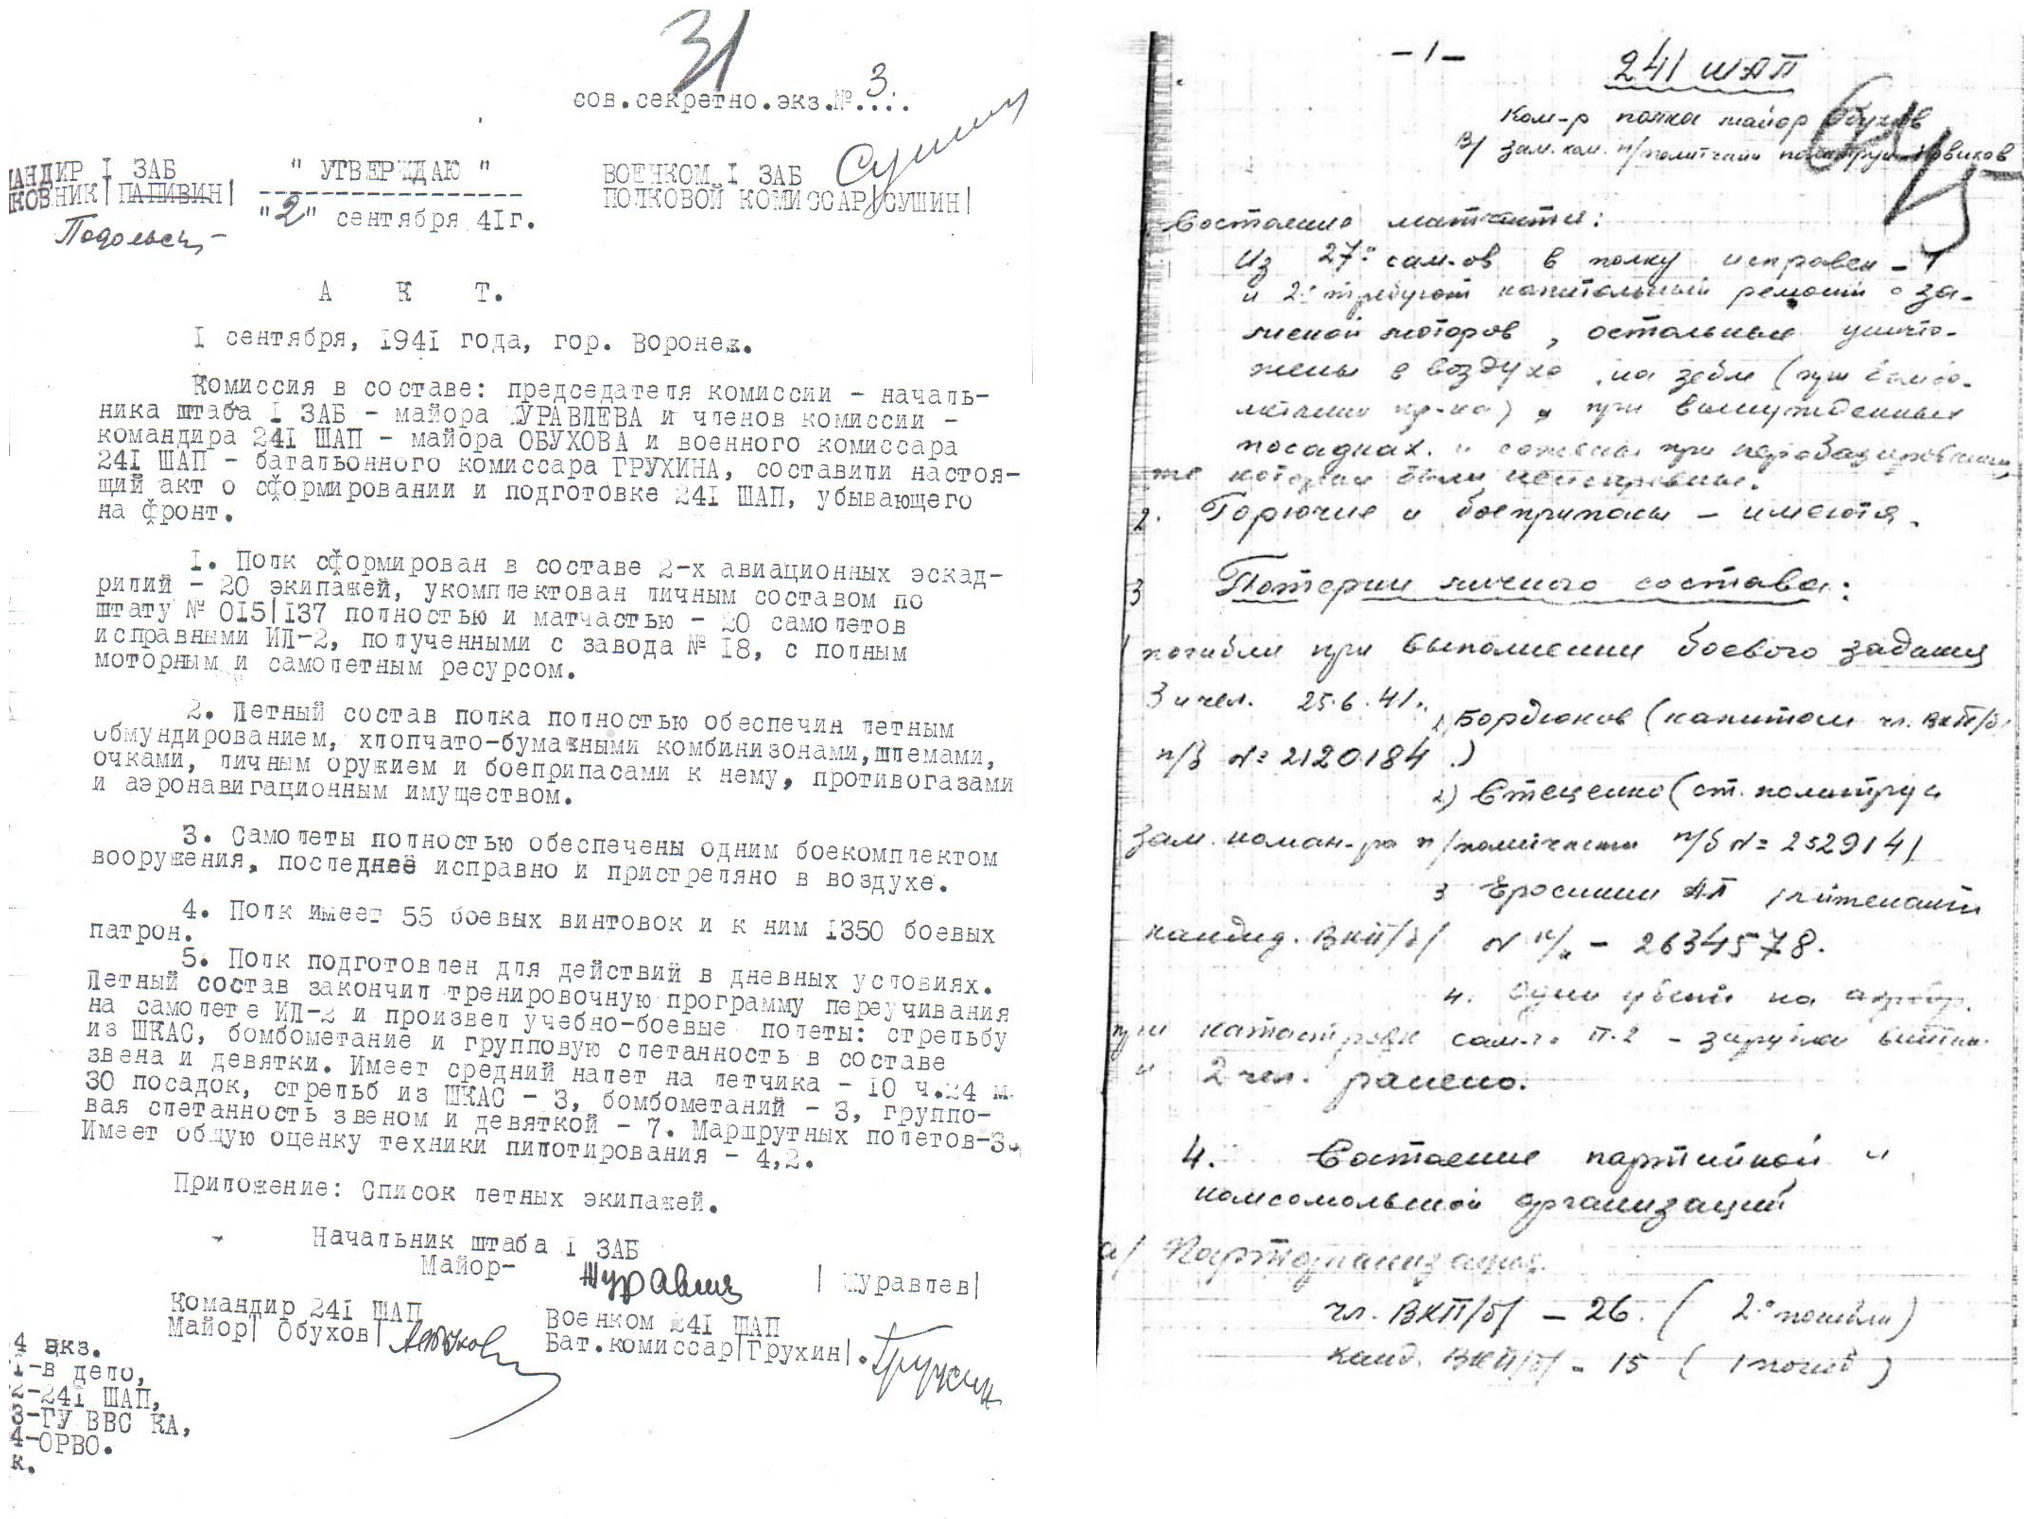 31
сов.секретно.экз.№ 3....
АНДИР I ЗАБ
" УТВЕРЖДАЮ "
ВОЕНКОМ I ЗАБ
КОВНИК| ПАПИВИН|
ПОЛКОВОЙ КОМИССАР|СУШИН|
"2" сентября 41г.
А К Т.
I сентября, 1941 года, гор. Воронеж.
Комиссия в составе: председателя комиссии - началь-
ника штаба I ЗАБ - майора ЖУРАВЛЕВА и членов комиссии -
командира 241 ШАП - майора ОБУХОВА и военного комиссара
241 ШАП - батальонного комиссара ГРУХИНА, составили настоя-
щий акт о сформировании и подготовке 241 ШАП, убывающего
на фронт.
I. Полк сформирован в составе 2-х авиационных эскад-
рилий - 20 экипажей, укомплектован личным составом по
штату № 015|137 полностью и матчастью - 20 самолетов
исправными ИЛ-2, полученными с завода № 18, с полным
моторным и самолетным ресурсом.
2. Летный состав полка полностью обеспечин летным
обмундированием, хлопчато-бумажными комбинизонами,шлемами,
очками, личным оружием и боеприпасами к нему, противогазами
и аэронавигационным имуществом.
3. Самолеты полностью обеспечены одним боекомплектом
вооружения, последнеё исправно и пристреляно в воздухе.
4. Полк имеет 55 боевых винтовок и к ним 1350 боевых
патрон.
5. Полк подготовлен для действий в дневных условиях.
Летный состав закончил тренировочную программу переучивания
на самолете ИЛ-2 и произвел учебно-боевые полеты: стрельбу
из ШКАС, бомбометание и групповую слетанность в составе
звена и девятки. Имеет средний налет на летчика - 10 ч.24 м.
30 посадок, стрельб из ШКАС - 3, бомбометаний - 3, группо-
вая слетанность звеном и девяткой - 7. Маршрутных полетов-3.
Имеет общую оценку техники пилотирования - 4,2.
Приложение: Список летных экипажей.
Начальник штаба I ЗАБ
Майор- Журавлев | Журавлев|
Командир 241 ШАП
Военком 241 ШАП
Майор| Обухов|
Бат.комиссар|Грухин|.
4 экз.
1-в дело,
2-241 ШАП,
3-ГУ ВВС КА,
4-ОРВО.
к.
-1-
241 ШАП
Ком-р полка майор Обухов
В/ зам. ком. п/политчасти политрук
Состояние матчасти:
Из 27 сам-ов в полку исправен - 1
и 2 требуют капитальный ремонт с за-
меной моторов, остальные уничто-
жены в воздухе, на земле (при бомбо-
метании пр-ка) и при вынужденных
посадках. и сожжены при перебазировании,
которые были неисправны.
2. Горючие и боеприпасы - имеются.
3 Потери личного состава:
погибли при выполнении боевого задания
3 чел. 25.6.41г. 1) Бордюков (капитан чл. ВКП/б/
п/б №= 2120184.)
2) Стеценко (ст. политрук
зам. коман-ра п/политчасти п/б №= 2529141
3 Еросинин АП /лейтенант
кандид. ВКП/б/ № к/к - 2634578.
4. Один убит на аэродр.
при катастрофе сам-та П-2 - зарублен винтом
и 2 чел. ранено.
4. Состояние партийной и
комсомольской организаций
а/ Парторганизация.
чл. ВКП/б/ - 26. ( 2 погибли)
Канд. ВКП/б/ - 15 ( 1 погиб )